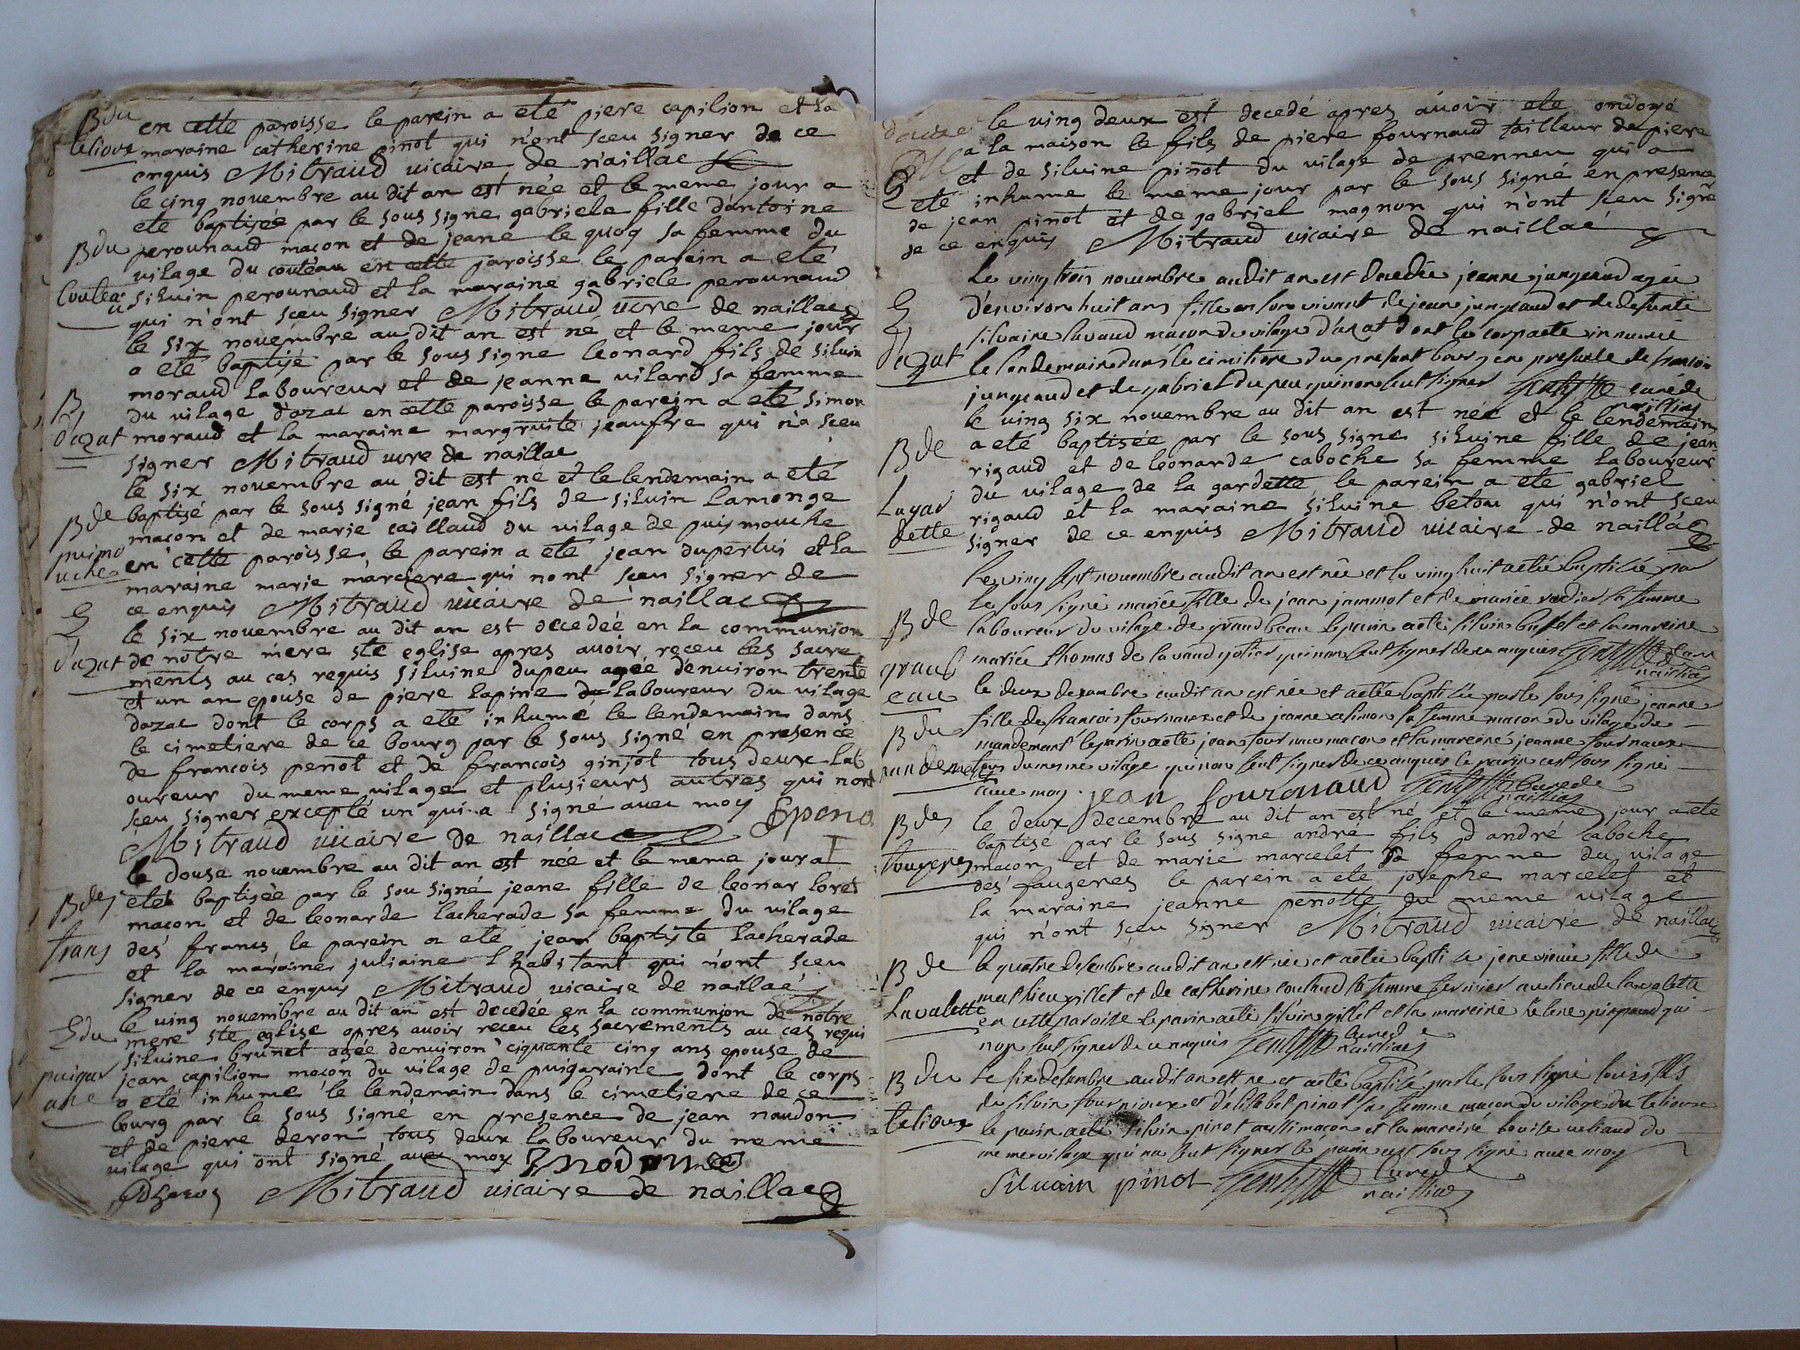 B du
teliour
en cette paroisse le parein a eté piere capilion et la
maraine catherine pinot qui n'ont sceu signer de ce
enquis Mitraud vicaire de naillac
le cinq novembre au dit an est née et le meme jour a
eté baptisée par le sous signe gabriele fille dantoine
B du
Couteau
perounaud maçon et de jeane le quoq sa femme du
vilage du couteau en cette paroisse le parein a eté
siluin perounaud et la maraine gabriele perounaud
qui n'ont sceu signer Mitraud vicre de naillac
le six novembre au dit an est ne et le meme jour
a eté baptisé par le sous signe leonard fils de siluin
moraud laboureur et de jeanne vilard sa femme
B
d'azat
du vilage d'azac en cette paroisse le parein a eté simon
moraud et la maraine margruite jeaufre qui n'a sceu
signer Mitraud vicre de naillac
le six novembre au dit est né et le lendemain a eté
B de
puimo
uche
baptisé par le sous signé jean fils de siluin lamonge
maçon et de marie caillaud du vilage de puismouche
en cette paroisse le parein a eté jean dupertui et la
maraine marie marciere qui nont sceu signer de
ce enquis Mitraud vicaire de naillac
E
d'azat
le six novembre au dit an est decedéé en la communion
de notre mere ste eglise apres avoir receu les sacre
ments au cas requis siluine dupeu agée d'enuiron trente
et un an epouse de piere lapine de laboureur du vilage
dazac dont le corps a eté inhumé le lendemain dans
le cimetiere de ce bourg par le sous signé en presence
de francois penot et de francois ginjot tous deux lab
oureur du meme vilage et plusieurs autres qui n'ont
sceu signer excepté un qui a signé avec moy Epeno
Mitraud vicaire de naillac
le douse novembre au dit an est née et le meme jour a
B des
frans
eté baptisée par le sou signé jeane fille de leonar lores
maçon et de leonarde lacherade sa femme du vilage
des francs le parein a eté jean baptiste lacherade
et la maraine juliaine lhabitant qui n'ont sceu
signer de ce enquis Mitraud vicaire de naillac
E du
puigar
ane
le ving novembre au dit an est decedée en la communion de notre
mere ste eglise apres avoir receu les sacrements au cas requi
siluine brunet agée denuiron ciquante cinq ans epouse de
jean capilion maçon du vilage de puigaraine dont le corps
a eté inhumé le lendemain dans le cimetiere de ce
bourg par le sous signe en presence de jean naudon
et de piere deron tous deux laboureur du meme
vilage qui ont signé avec moy
Mitraud vicaire de naillac
E
le ving deux est decedé apres auoir eté ondoyé
a la maison le fils de piere fournaud tailleur de piere
et de siluine pinot du vilage de prenneu qui a
eté inhume le meme jour par le sous signé en presence
de jean pinot et de gabriel magnon qui n'ont sceu signé
de ce enquis Mitraud vicaire de naillac
E
d'azat
Le ving trois novembre audit an est decedée jeanne jungeaud agée
d'environ huit ans fille en son vivant de jean jungeaud et de defunte
silvaine lavaud maçon du vilage d'azat dont le corps a eté innumée
le lendemain dans le cimitiere du present bourg en presence de francois
jungeaud et de gabriel dupeu qui non seut signer curé de
naillac
le ving six novembre au dit an est née et le lendemain
B de
Lagar
dette
a eté baptisée par le sous signe siluine fille de jean
rigaud et de leonarde caboche sa femme laboureur
du vilage de la gardette le parein a eté gabriel
rigaud et la maraine siluine betou qui n'ont sceu
signer de ce enquis Mitraud vicaire de naillac
B de
granb
eau
Le ving sept novembre audit an est née et le ving huit a eté baptisée par
le sous signé mariée fille de jean jammot et de mariée sa femme
laboureur du vilage de grandbeau le parin a eté silvin et la mareine
mariée thomas de qui nont seut signer de ce enquis curé
de naillac
B du
mandement
le deux desambre audit an est née et a etée baptisée par le sous signé jeanne
fille de francois fournaux et de jeanne simon sa femme maçon du vilage de
mandement le parin a eté jean fournaux maçon et la mareine jeanne fournaux
tous du meme vilage qui non seut signer de ce enquis le parin est sous signé
avec moy jean fouronaud curé de
naillac
B des
fougeres
le deux decembre au dit an est né et le meme jour a eté
baptise par le sous signe andré fils d'andré laboche
maçon et de marie marcelet sa femme du vilage
des faugeres le parein a eté josephe marcelet et
la maraine jeanne penotte du meme vilage
qui n'ont sceu signer Mitraud vicaire de naillac
B de
Lavalette
le quatre desembre audit an est née et a etée baptisée jenevieuie fille de
mathieu gillet et de catherine coulaud sa femme au lieu de lavalette
en cette paroisse le parin a eté silvin gillet et la mareine helene qui
non seut signer de ce enquis curé de
naillac
B du
teliour
le six desembre audit an est ne et a eté baptisé par le sous signé louis fils
de silvin fournioux et d'elisabet pinot sa femme maçon du vilage du teliour
le parin a eté silvin pinot aussi maçon et la mareine louise du
meme vilage qui na seut signer le parin est sous signé avec moy
Silvain pinot curé de
naillac